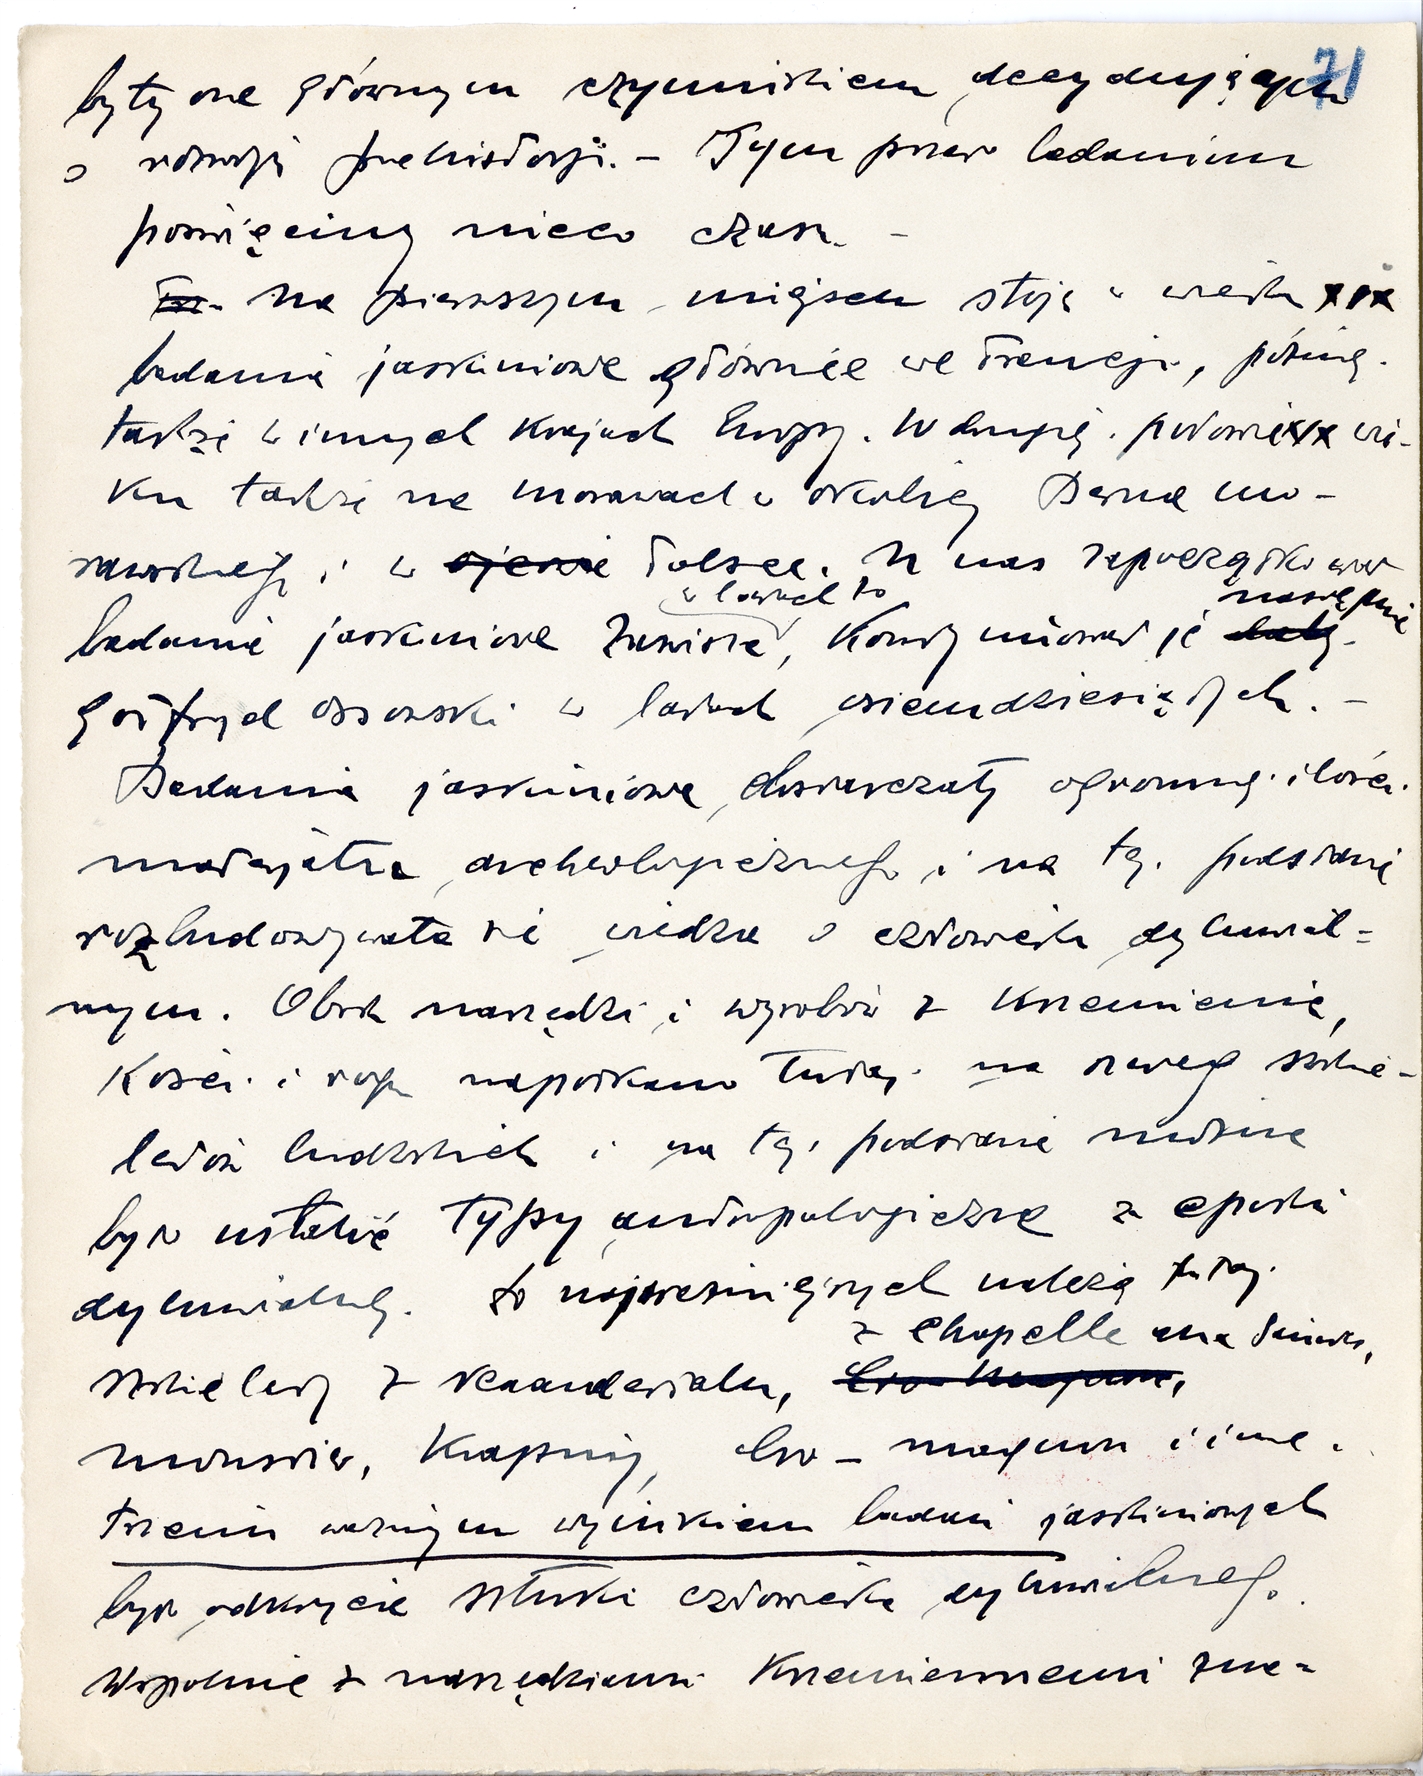 71
były one głównym czynnikiem decydującym
o rozwoju prehistorji. – Tym badaniom
poświęcimy nieco czasu. –
Na pierwszym miejscu stoją w wieku XIX
badania jaskiniowe głównie we Francji, później
także w innych krajach Europy. W drugiej połowie XIX wie-
ku także na Morawach w okolicy Berna mo-
rawskiego i w Ojcowie Polsce. U nas zapoczątkował
w latach 70 następnie
badania jaskiniowe Zawisza, kontynuował je
Gotfryd Ossowski w latach osiemdziesiątych. –
Badania jaskiniowe dostarczały ogromnej ilości
materjału archeologicznego i na tej podstawie
rozbudowywała się wiedza o człowieku dyluwial=
nym. Obok narzędzi i wyrobów z krzemienia,
kości i rogu napotkano tutaj na szereg szkie-
letów ludzkich i na tej podstawie można
było ustalić typy antropologiczne z epoki
dyluwialnej. Do najważniejszych należą tutaj
z Chapelle aux Saints,
szkielety z Neandertalu, Cro-Magnon,
Moustier, Krapiny, Cro-Magnon i inne.
Trzecim ważnym wynikiem badań jaskiniowych
było odkrycie sztuki człowieka dyluwialnego.
Wspólnie z narzędziami krzemiennemi zna=